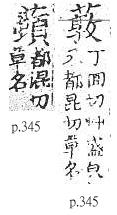 丁回切艸盛皃
又都昆切草名
p.345
都混切
草名
p.345